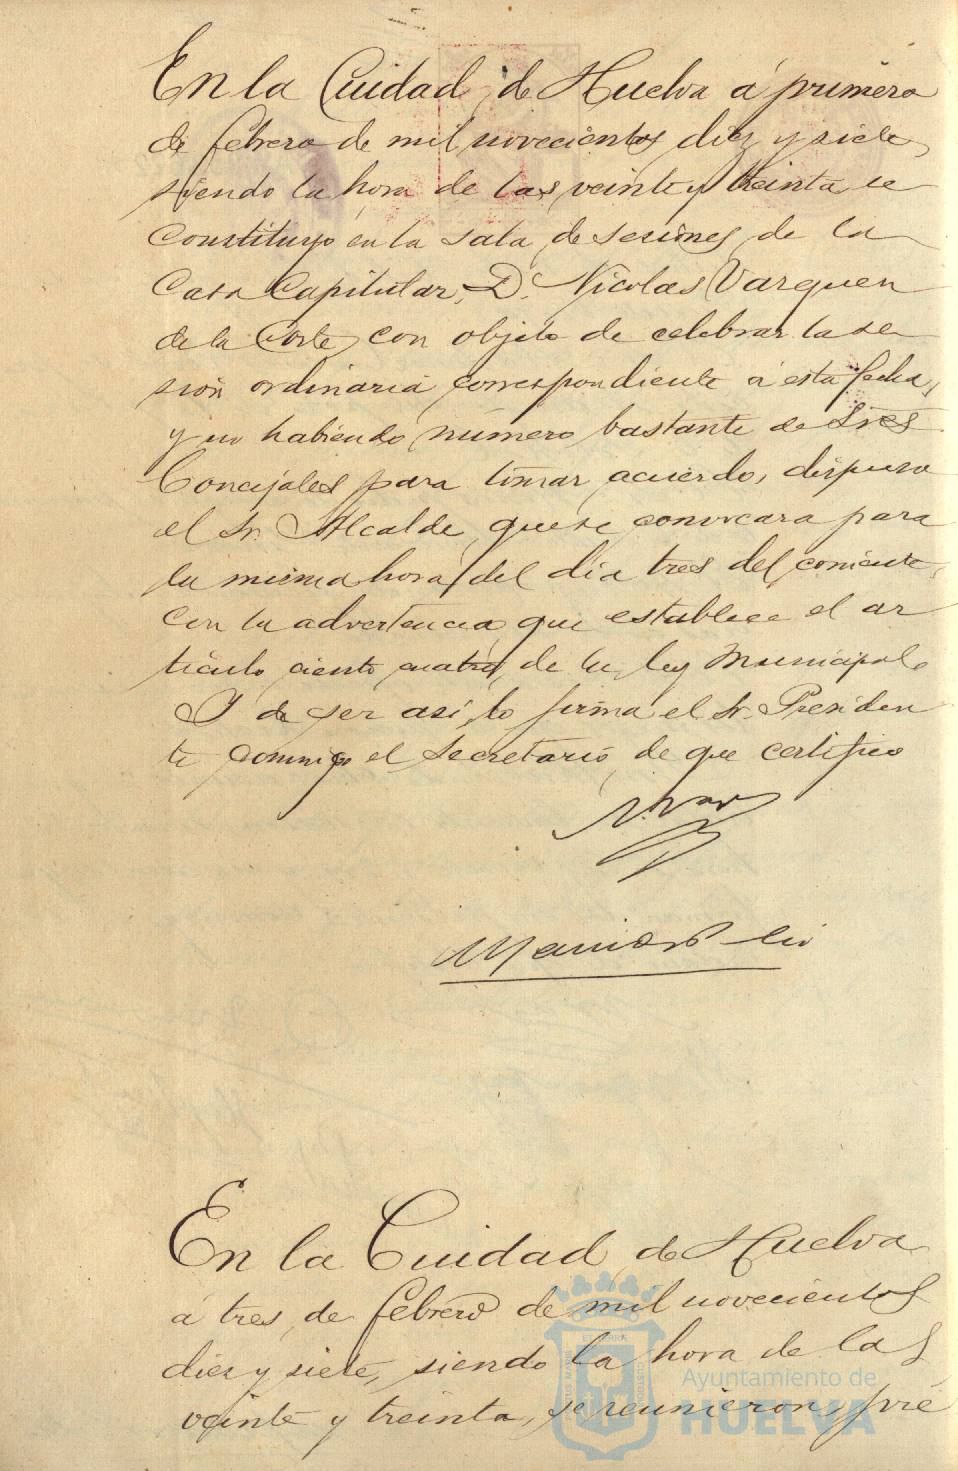 En la Cuidad de Huelva á primero
de febrero de mil novecientos diez y siete,
siendo la hora de las veinte y treinta se
constituyo en la sala de sesiones de la
Casa Capitular, D. Nicolas Varquen
de la Corte, con objeto de celebrar la se
sión ordinaria correspondiente á esta fecha,
y no habiendo número bastante de Sres
Concejales para tomar acuerdo, dispuso
el Sr. Alcalde que se convocara para
la misma hora del dia tres del corriente,
con la advertencia que establece el ar
tículo ciento cuatro de la ley Municipal.
Y de ser asi lo firma el Sr. Presiden
te conmigo el Secretario de que certifico
En la Cuidad de Huelva
á tres de febrero de mil novecientos
diez y siete, siendo la hora de las
veinte y treinta, se reunieron, pré
Ayuntamiento de
HUELVA